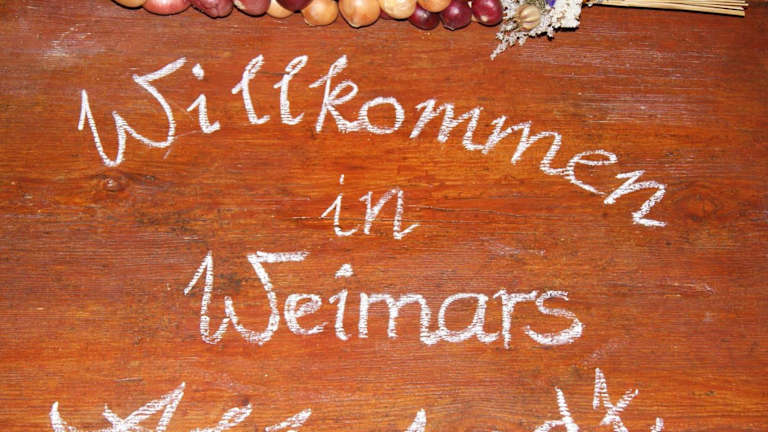 Willkommen
in
Weimars